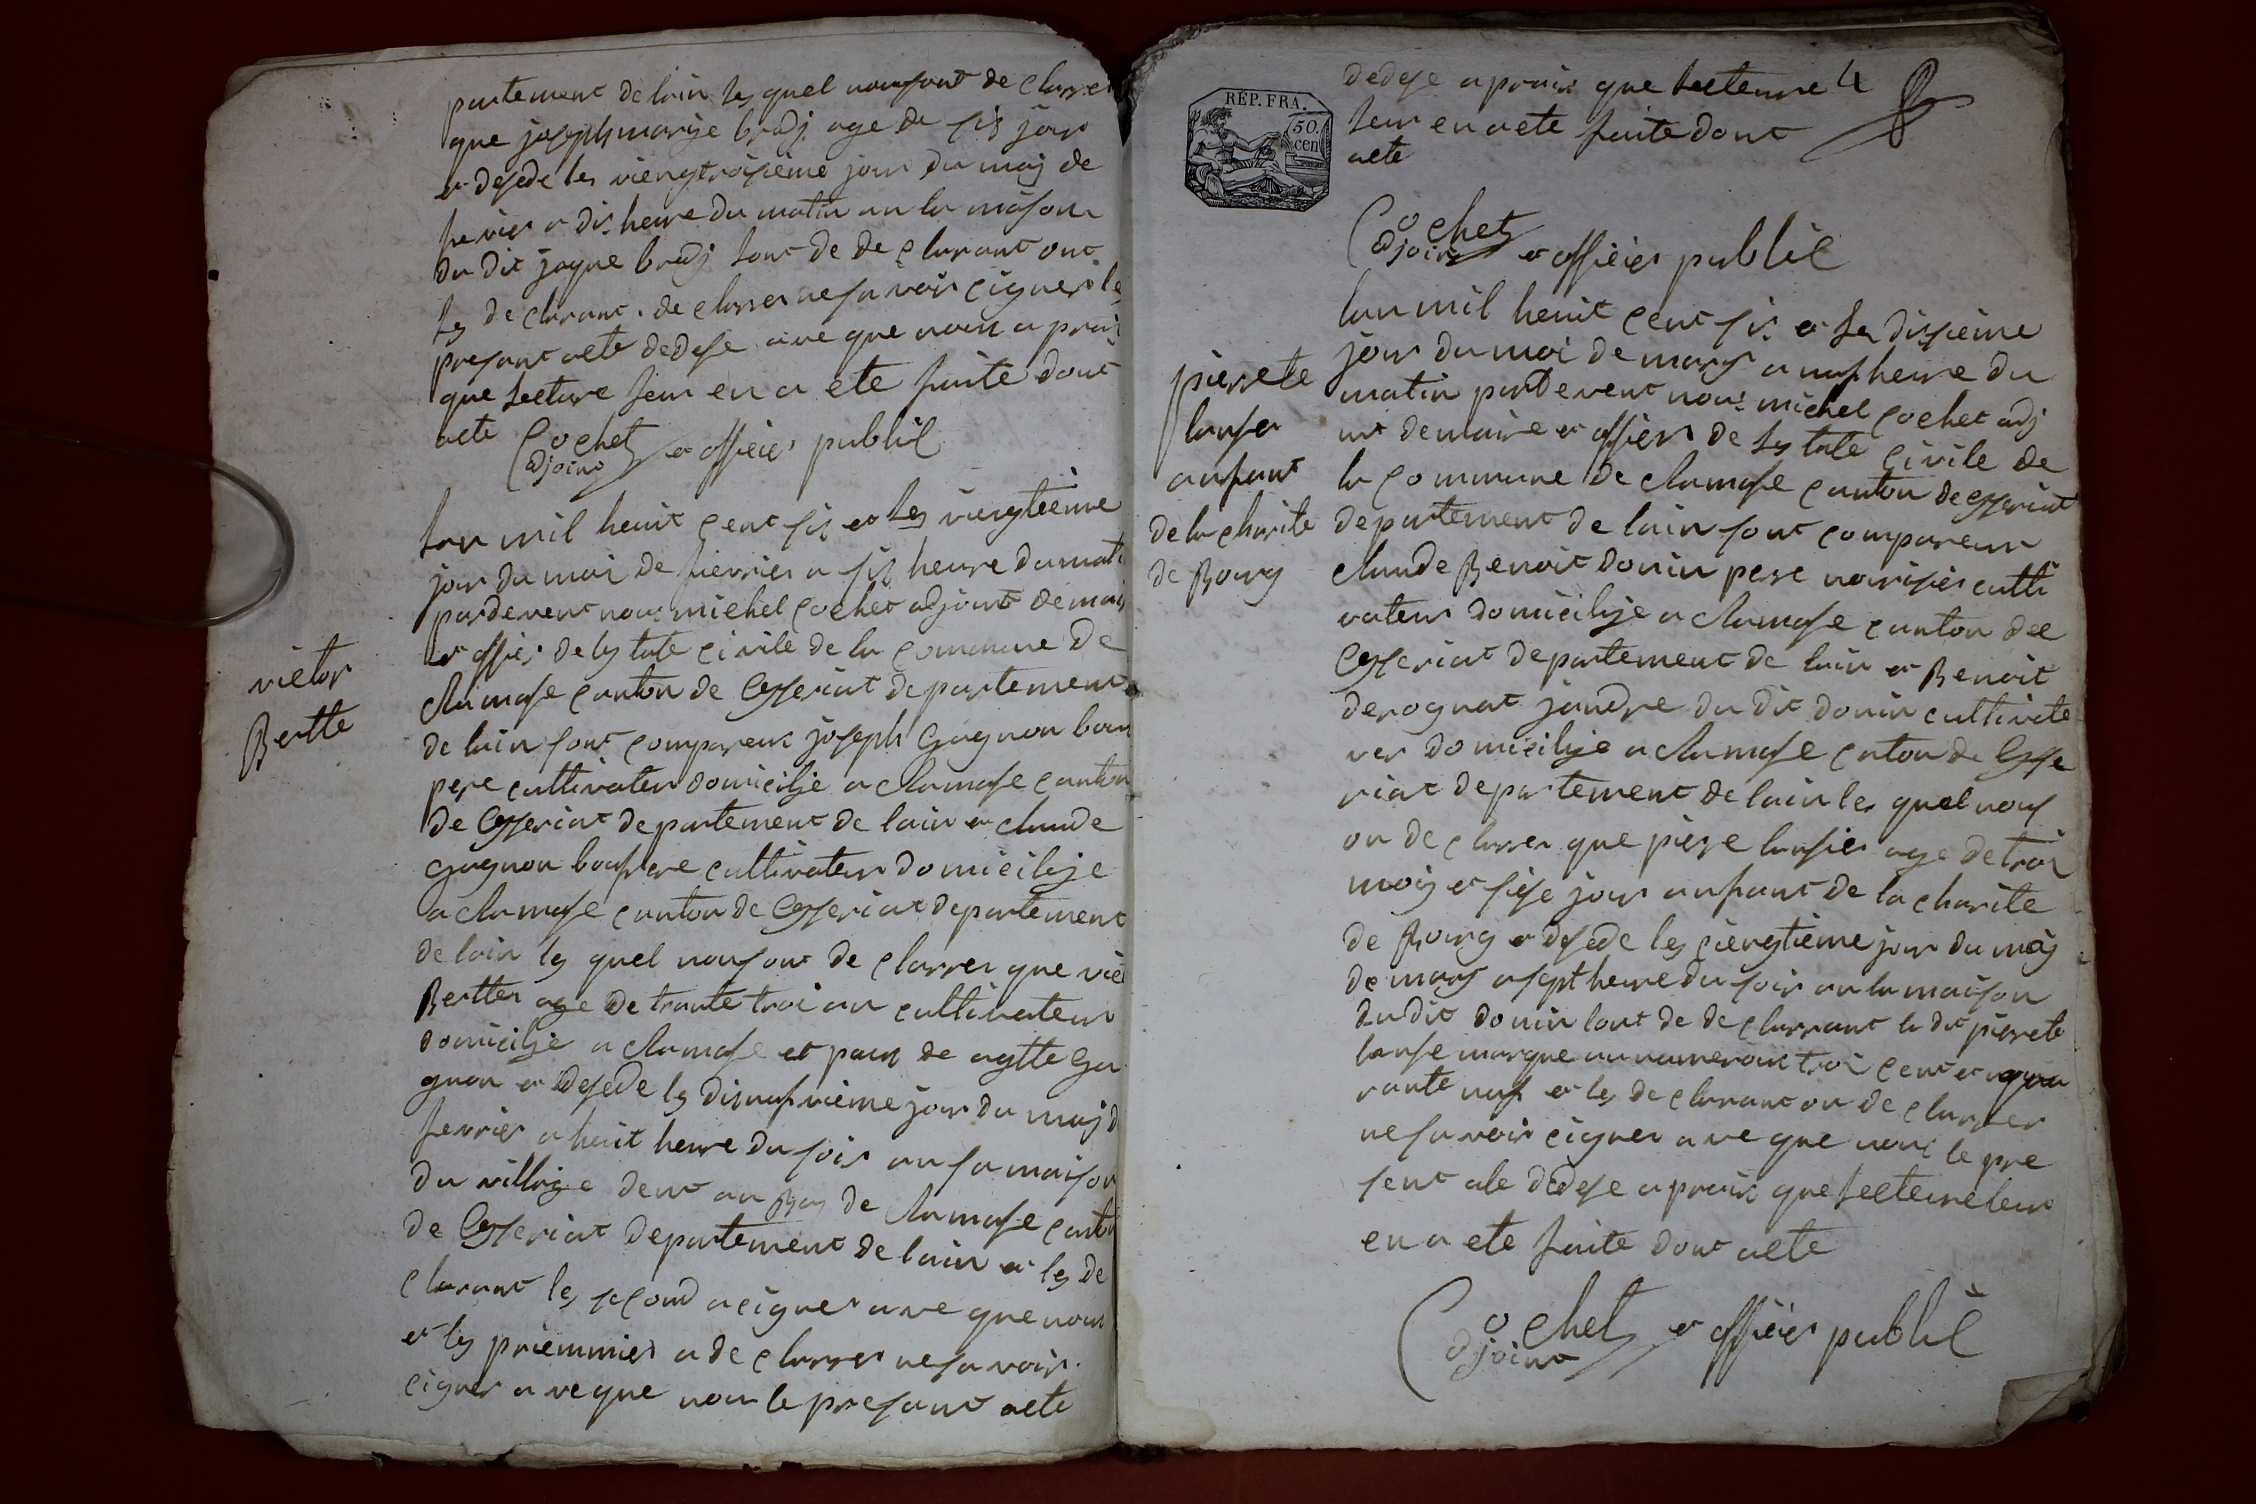 partement de lain les quel nousont de clarrer
que joseph marije brdj age de sis jour
et desede les viengtroisieme jour du maj de
fevrier a dis heure du matin an la maison
du dit jaque brdj sont de de clarant ont
les de clarant de clarer ne savoir cigner le
presant acte dedese avec que nous a praj
que lecture leur en a ete faite dont
acte
Cochet
adjoint et officier public
lan mil heuit cent sis et les viengtieme
jour du moi de fievrier a sis heure du mati
pardevent nous michel cochet adjoint de mair
et offier de les tate civile de la commune de
Ramase canton de Ceyseriat departement
de lain sont compareur joseph gagnon bau
pere cultivateur domicilije a Ramase canton
de Ceyseriat departement de lain et claude
gagnon baufrere cultivateur domicilije
a Ramase canton de Ceyseriat departement
de lain les quel nousont de clarrer que vic
Bertter age de trante troi an cultivateur
domicilije a Ramase et paux de agtte ga
gnon et desede les disnufvieme jour du maj d
fevrier a heuit heure du soir an sa maison
du village dent au Bas de Ramase canton
de Ceyseriat departement de lain et les de
clarant les second a cigner ave que nous
et les priemmier a de clarrer ne savoir
cigner a veque nous le presant acte
victor
Bertte
RÉP. FRA.
50.
cen
dedese a praix que lecteure
leur en a ete faite dont
acte
Cochet
adjoint et officier public
lan mil heuit cent sis et les disieme
jour du moi de mars a nuf heure du
matin pardevent nous michel cochet adj
int demaire et offier de les tate civile de
la commune de Ramase canton de ceyseriat
departement de lain sont compareur
claude Benoit donin pere nourisier culti
vateur domicilije a Ramase canton de
Ceyseriat departement de lain et Benoit
derognat jandre du dit donin cultivate
ver domicilije a Ramase canton de Ceyse
riat departement de lain les quel nous
on de clarrer que piere lansier age de troi
mois et sise jour anfant de la charite
de Bourg et desede les ciengtieme jour du maj
de mars a sept heure du soir an la maison
du dit donin lont de de clarrant le dit pierete
lanse marque au numeroux troi cent et qua
rante nuf et les de clarant on de clarrer
ne savoir cigner a ve que nous le pre
sent ate dedese a praix que lecteure leur
en a ete faite dont acte
Cochet
adjoint et officier public
pierete
lanse
anfant
de la charite
de Bourg